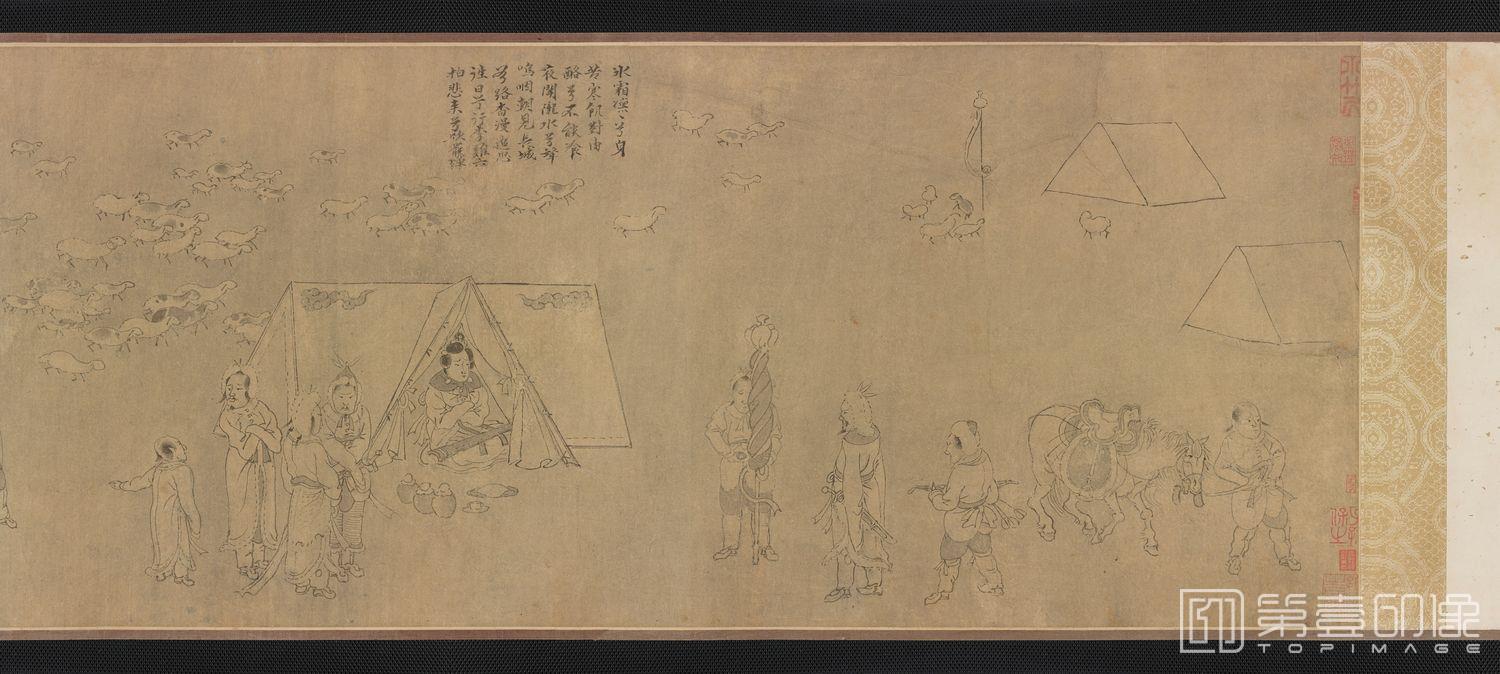 冰霜凜〻兮身
苦寒飢對肉
酪兮不能飡
夜聞隴水兮聲
嗚咽朝見長城
兮路杳漫追思
往日兮行李難六
拍悲来兮欲罷彈
第壹印像
TOPIMAGE